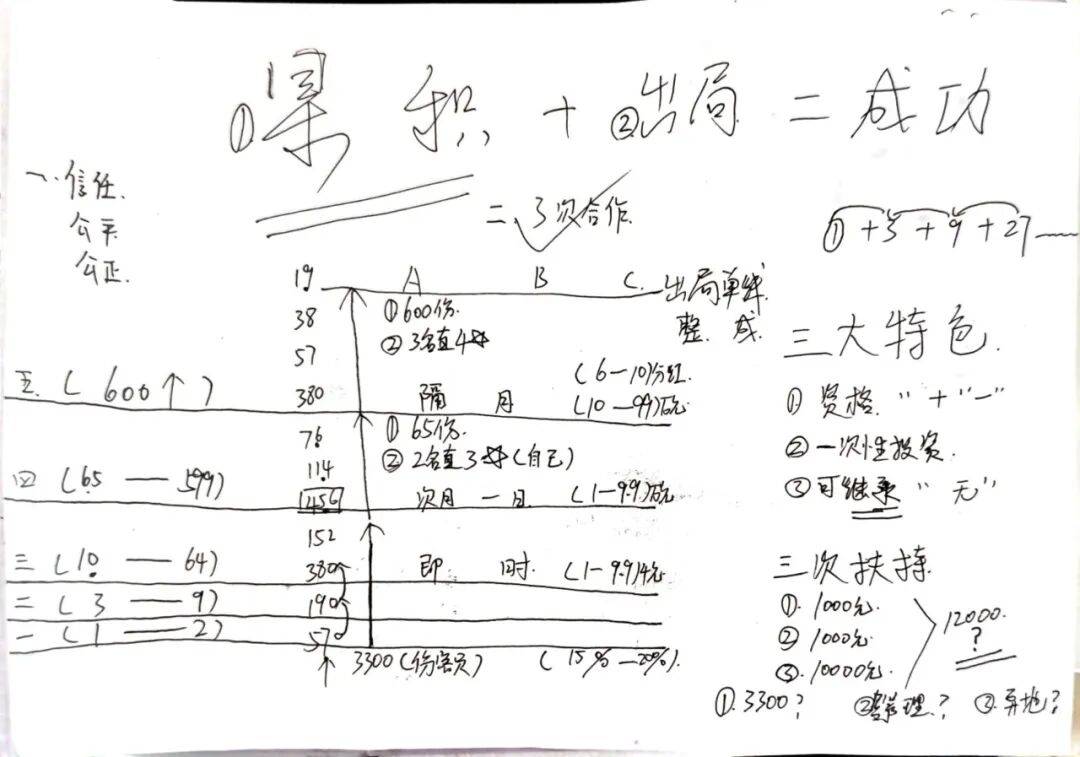 ①累积+②出局=成功
一.信任.
公平
公正.
=3次合作.
①+3+9+27
19 A B C. 出局单线
38 ①600份. 整 成.
57 ②3名直4
三大特色.
(6-10)分红.
五.(600↑) 380 隔 月 (10-99)万元
①资格. "+""-"
76 ①65份.
②一次性投资.
114 ②2名直3(自己)
四(65—599) 456 次月一日 (1-9.9)万元
③可继承 "无"
152
三次扶持.
三(10—64) 380 即 时. (1-9.9)4元
二(3—9) 190
①.1000元.
②1000元
③.10000元.
12000.
?
一(1—2) 570
3300(份/客员) (15%-20%).
①.3300? ②管理? ③异地?